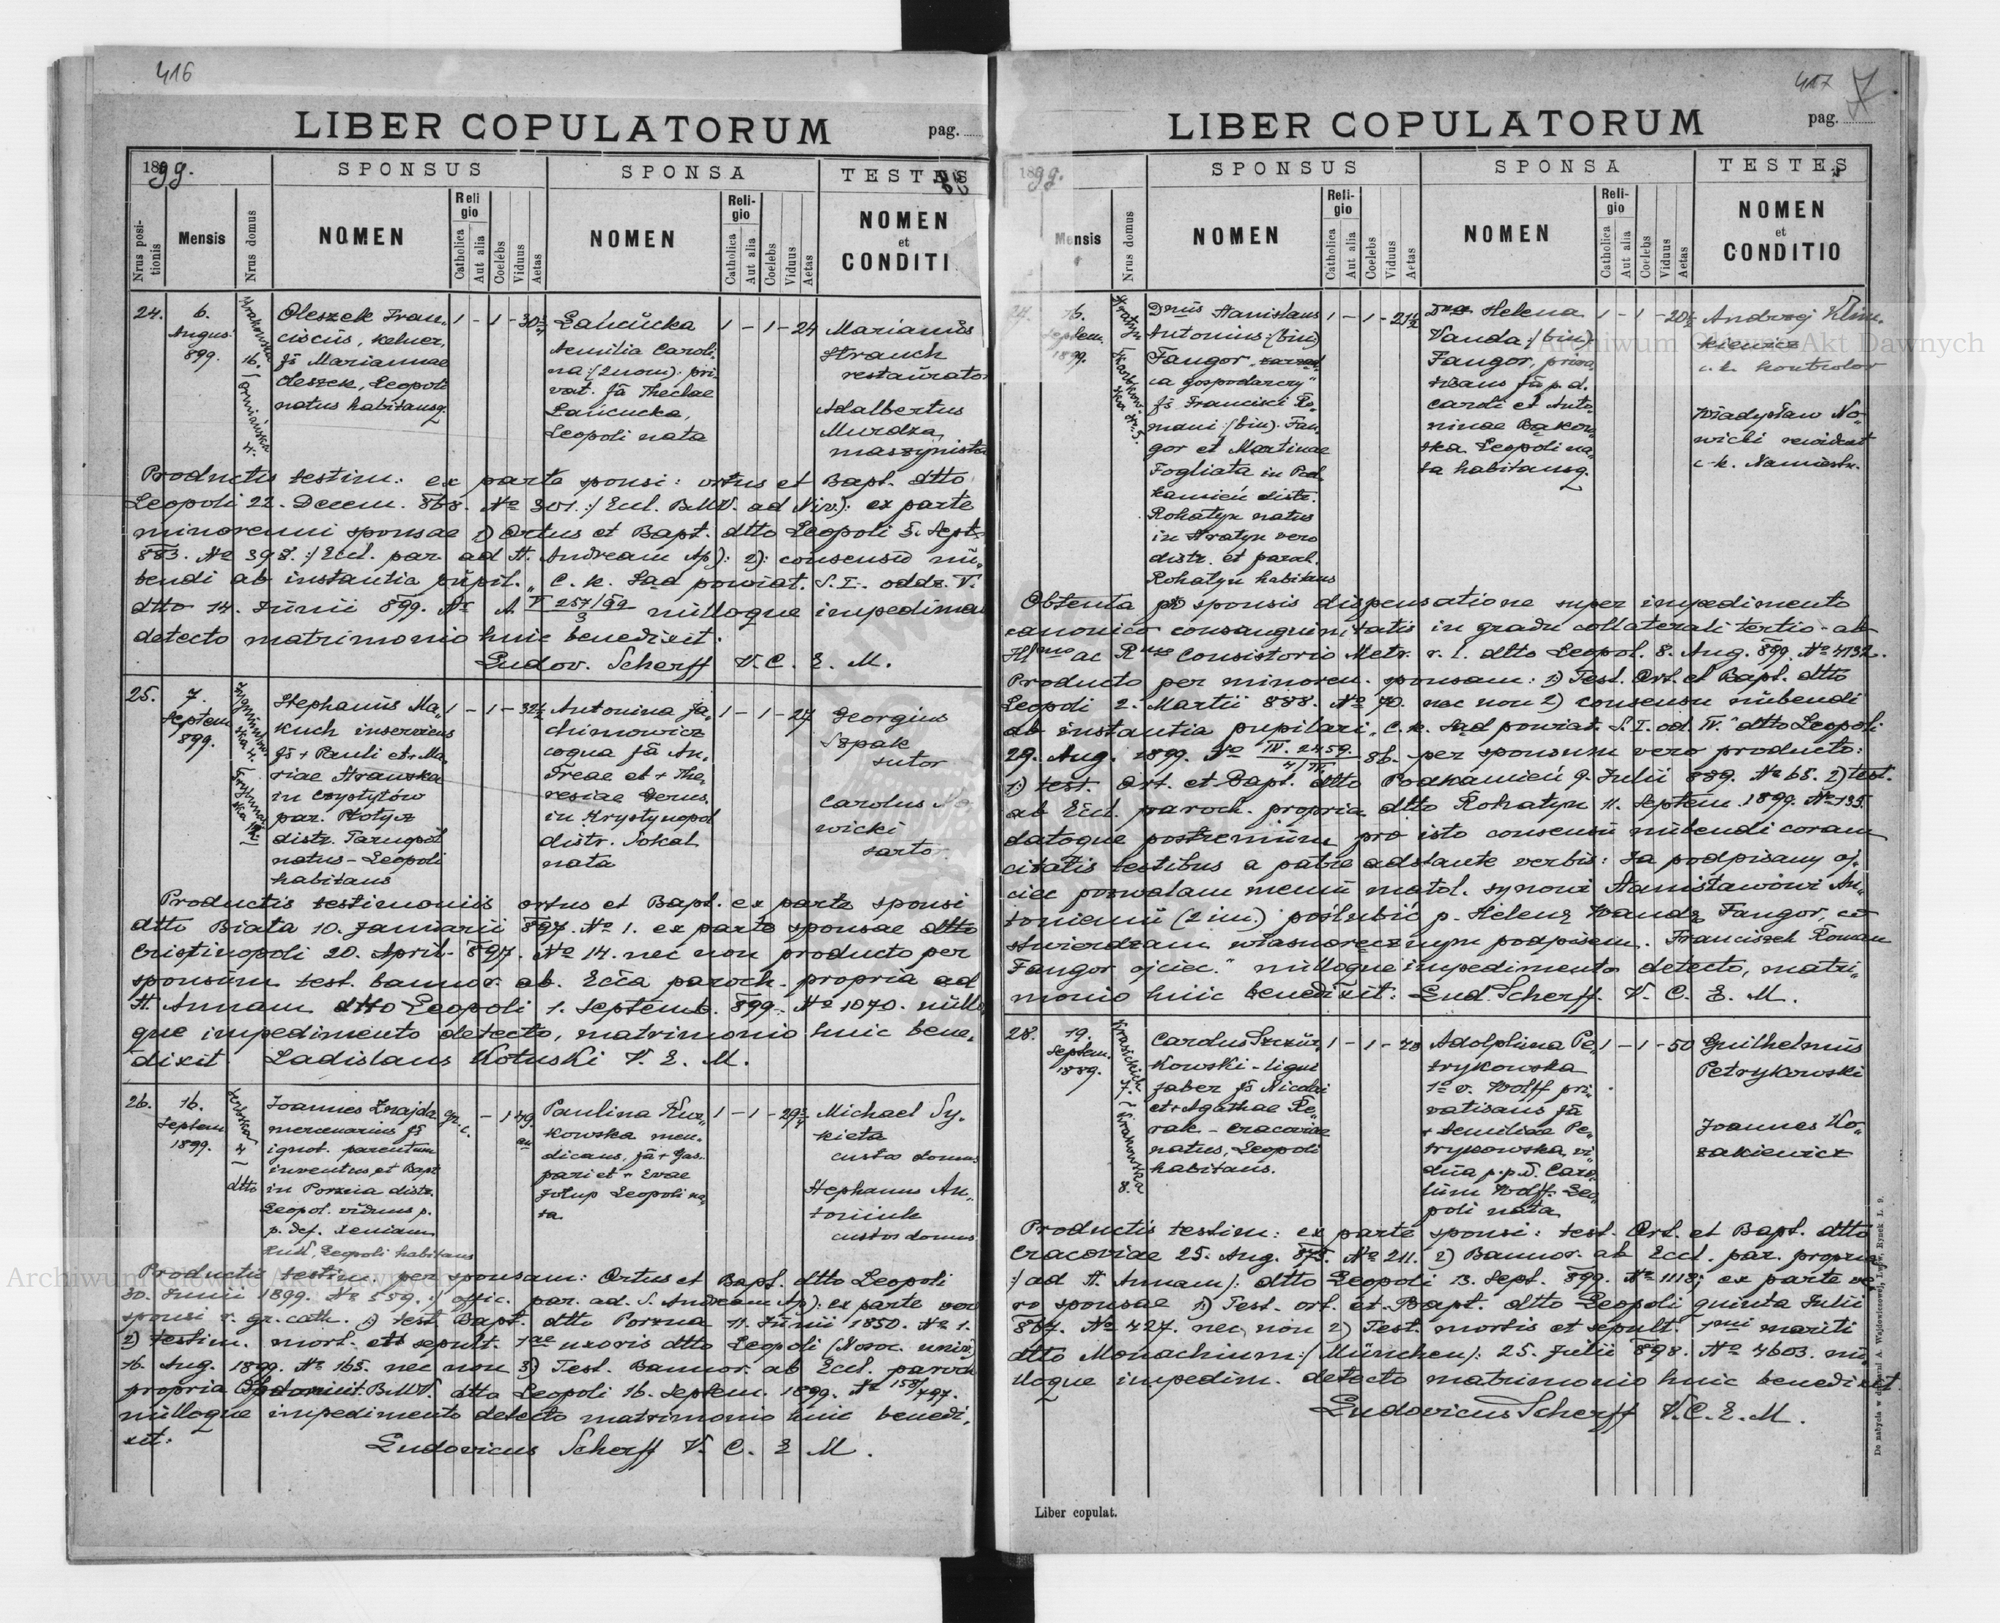 416
LIBER COPULATORUM
pag.
1899.
SPONSUS
SPONSA
TESTES
Nrus positionis
Mensis
Nrus domus
NOMEN
Religio
Catholica
Aut alia
Coelebs
Viduus
Aetas
NOMEN
Religio
Catholica
Aut alia
Coelebs
Viduus
Aetas
NOMEN
et
CONDITI
24.
6.
August
899.
Oleszek Fran-
ciscus, kelner,
fs Mariannae
Oleszek, Leopoli
natus habitansq.
1 - 1 - 30
Łańcucka
Aemilia Caroli-
na :(2 nom). pri-
vat. fa Theclae
Łańcucka,
Leopoli nata
1 - 1 - 24
Marianus
Strauch
restaurator
Adalbertus
Murdza
maszynista
Productis testim: ex parte sponsi: ortus et Bapt. dtto
Leopoli 22. Decem. 868. No 301. :/Eccl. B.M.V. ad Niv.): ex parte
minorenni sponsae 1) Ortus et Bapt. dtto Leopoli 5. Sept.
883. No 398. :/Eccl. par. ad St. Andream Ap.): 2): consensu nu-
bendi ab instantia pupil. „C. k. Sąd powiat. S. I. oddz. V.
dtto 14. Junii 899. No A V 257/99 / 3 nulloque impedimen
detecto matrimonio huic benedixit.
Ludov. Scherff V. C. E. M.
25.
7.
Septem
899.
Stephanus Ma-
kuch inserviens
fs + Pauli et + Ma-
riae Hrawska
in Czystyłów
par. Płotycz
distr. Tarnopol
natus - Leopoli
habitans
1 - 1 - 32½
Antonina Ja-
chimowicz
coqua fa An-
dreae et + The-
resiae Derus.
in Krystynopol
distr. Sokal
nata
1 - 1 - 27
Georgius
Szpak
sutor
Carolus No-
wicki
sartor
Productis testimoniis ortus et Bapt. ex parte sponsi
dtto Biała 10. Januarii 897. No 1. ex parte sponsae dtto
Cristinopoli 20. April. 897. No 14. nec non producto per
sponsum test. bannor. ab Eccla paroch. propria ad
St. Annam dtto Leopoli 1. Septemb. 899. No 1070. nullo
que impedimento detecto, matrimonio huic bene-
dixit. Ladislaus Kotuski V. E. M.
26.
16.
Septem
1899.
dtto
Joannes Znajda
mercenarius fs
ignot. parentum
inventus et Bapt.
in Porzna distr.
Leopol. viduus p.
p. def. Xeniam
Leopoli habitans
gr. c. - 1 49 an
Paulina Kur-
kowska men-
dicans, fa + Gas-
pari et + Evae
Leopoli na-
ta
1 - 1 - 29
Michael Sy-
kieta
custos domus
Stephanus An-
toniuk
custos domus
Productis testim. per sponsam: Ortus et Bapt. dtto Leopoli
30. Junii 1899. No 559. :/ offic. par. ad. S. Andream Ap): ex parte vero
sponsi r. gr. cath. 1) test. Bapt. dtto Porzna 11. Junii 1850. No 1.
2) testim. mort. et sepult. 1ae uxoris dtto Leopoli (Nosoc. univ.)
16. Aug. 1899. No 165. nec non 3) Test. Bannor. ab Eccl. paroch
propria B.M.V. dtto Leopoli 16. Septem. 1899. No 158/797.
nulloque impedimento detecto matrimonio huic benedi-
xit:
Ludovicus Scherff V. C. E M.
417
LIBER COPULATORUM
pag.
7
1899.
SPONSUS
SPONSA
TESTES
Mensis
Nrus domus
NOMEN
Religio
Catholica
Aut alia
Coelebs
Viduus
Aetas
NOMEN
Religio
Catholica
Aut alia
Coelebs
Viduus
Aetas
NOMEN
et
CONDITIO
27.
16.
Septem.
1899.
Dnus Stanislaus
Antonius :(bin)
Fangor „zarząd-
ca gospodarczy”
fs Francisci Ro-
mani :(bin). Fan-
gor et Martinae
Fogliata in Pod-
kamień distr.
Rohatyn natus
in Hratyn vero
distr. et paroch.
Rohatyn habitans
1 - 1 - 21½
Dna Helena
Vanda :(bin)
Fangor, priva-
tisans fa p. d.
Caroli et Anto-
ninae Bąkow-
ska Leopoli na-
ta habitansq.
1 - 1 - 20½
Andrzej Klim-
kiewicz
c. k. kontrolor
Władysław No-
wicki rewident
c. k. Namiestn.
Obtenta pro sponsis dispensatione super impedimento
canonico consanguinitatis in gradu collaterali tertio ab
Illmo ac Rmo Consistorio Metr. r. l. dtto Leopol. 8. Aug. 899. No 4132.
Producto per minoren. sponsam: 1) Test. Ort. et Bapt. dtto
Leopoli 2. Martii 888. No 70. nec non 2) consensu nubendi
ab instantia pupilari „C. k. Sąd powiat. S. I. od. IV.” dtto Leopoli
29. Aug. 1899. No IV. 2459. 86. per sponsum vero producto:
1) test. Ort. et Bapt. dtto Podkamień 9. Julii 889. No 65. 2) test.
ab Eccl. paroch. propria dtto Rohatyn 11. Septem. 1899. No 135
datoque postremum pro isto consensu nubendi coram
citatis testibus a patre adstante verbis: Ja podpisany oj-
ciec pozwalam memu małol. synowi Stanisławowi An-
toniemu (2 im.) poślubić p. Helenę Wandę Fangor, co
stwierdzam własnoręcznym podpisem. Franciszek Roman
Fangor ojciec.” nulloque impedimento detecto, matri-
monio huic benedixit: Lud. Scherff. V. C. E. M.
28.
19.
Septem.
1899.
Krasickich
7. - Krakowska
8.
Carolus Szczur-
kowski - ligni
faber fs Nicolai
et + Agathae Re-
rak - Cracoviae
natus, Leopoli
habitans.
1 - 1 - 48
Adolphina Pe-
trykowska
1o v. Wolff pri-
vatisans fa
+ Aemiliae Pe-
trykowska, vi-
dua p. p. d. Caro-
lum Wolff. Leo-
poli nata
1 - 1 - 50
Guilhelmus
Petrykowski
Joannes Ko-
zakiewicz
Productis testim: ex parte sponsi: test. Ort. et Bapt. dtto
Cracoviae 25. Aug. 875. No 211. 2) Bannor. ab Eccl. par. propria
:/ ad St. Annam): dtto Leopoli 13. Sept. 899. No 1118; ex parte ve-
ro sponsae 1) Test. ort. et Bapt. dtto Leopoli quinta Julii
847. No 427. nec non 2) Test. mortis et sepult. 1mi mariti
dtto Monachium :(München): 25. Julii 898. No 4603. nu-
lloque impedim. detecto matrimonio huic benedixit
Ludovicus Scherff V. C. E. M.
Liber copulat.
Do nabycia w drukarni A. Wajdowiczowej, Lwów, Rynek l. 9.
Archiwum Główne Akt Dawnych
Archiwum Główne Akt Dawnych